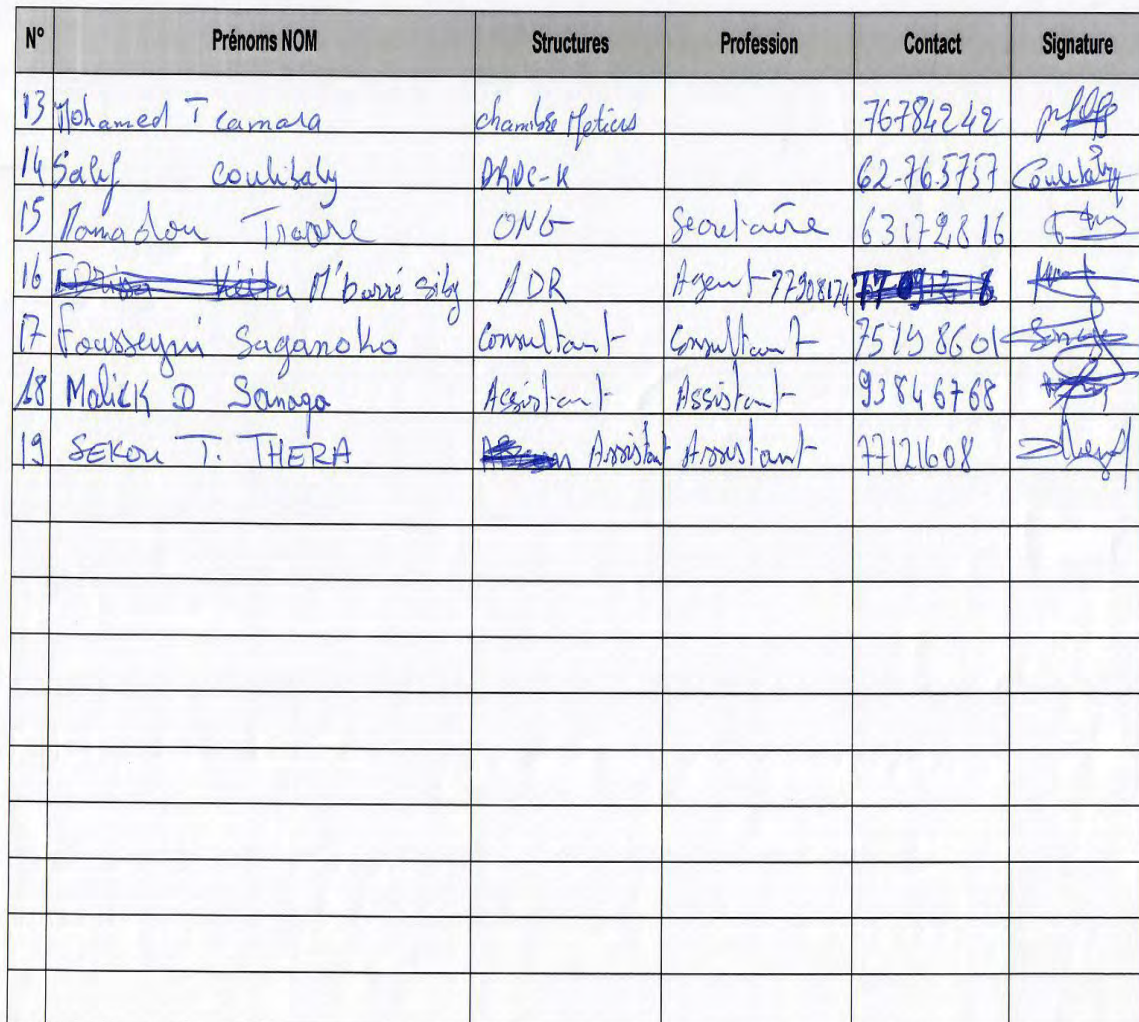 N° Prénoms NOM Structures Profession Contact Signature
13 Mohamed T camara chambre Metiers 76784242
14 Salif coulibaly DRDC-K 62-76.5757 Coulibaly
15 Mamadou Traore ONG Secretaire 63172816
16 M'barré Siby ADR Agent 77908174
17 Fousseyni Saganoko Consultant Consultant 75198601
18 Malick D Sanogo Assistant Assistant 93846768
19 SEKOU T. THERA Assistant Assistant 77121608